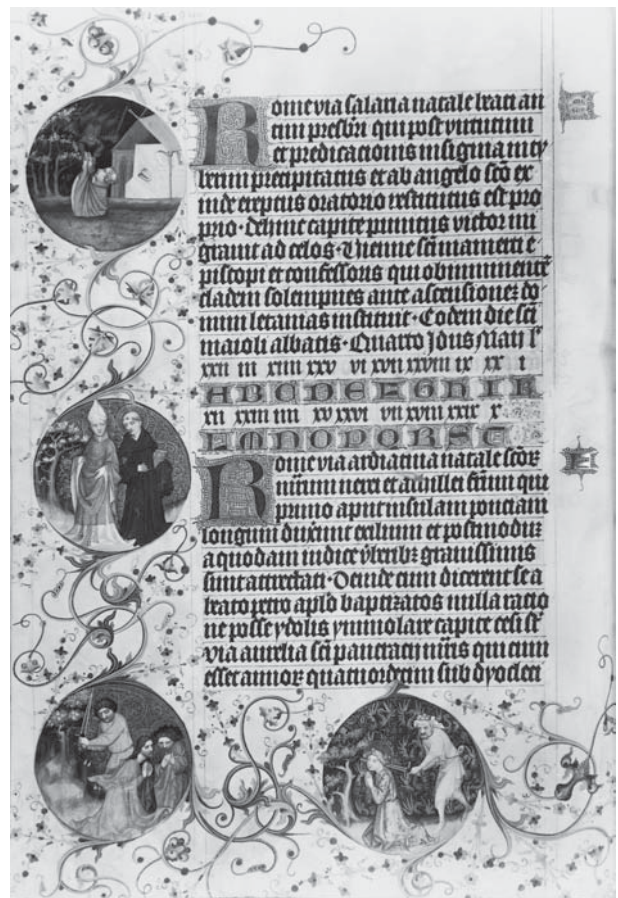 Rome via salaria natale beati an
timi presbiri qui post virtutum
et predicationis insignia in ty
berim precipitatus et ab angelo sco ex
inde ereptus oratorio restitutus est pro
prio · dehinc capite punitus victor mi
gravit ad celos · Vienne sci mamerti e
piscopi et confessoris qui ob imminente
cladem solempnes ante ascensionez do
mini letanias instituit · Eodem die sci
maioli abbatis · Quarto Idus Maii l
xxii iii xiiii xxv vi xvii xxviii ix xx i
A B C D E F G H I K
xii xxiii iiii xv xxvi vii xviii xxix x
L M N O P Q R S T
Rome via ardiatina natale scoꝝ
mrum nerei et achillei frum qui
primo aput insulam ponciam
longum duxerunt exilium et postmoduz
a quodam iudice verberibz gravissimis
sunt attrectati · Deinde cum dicerent se a
beato petro aplo baptizatos nulla racio
ne posse ydolis ymmolare capite cesi st
via aurelia sci pancracii mris qui cum
esset annoꝝ quatuordecim sub dyocleti
E